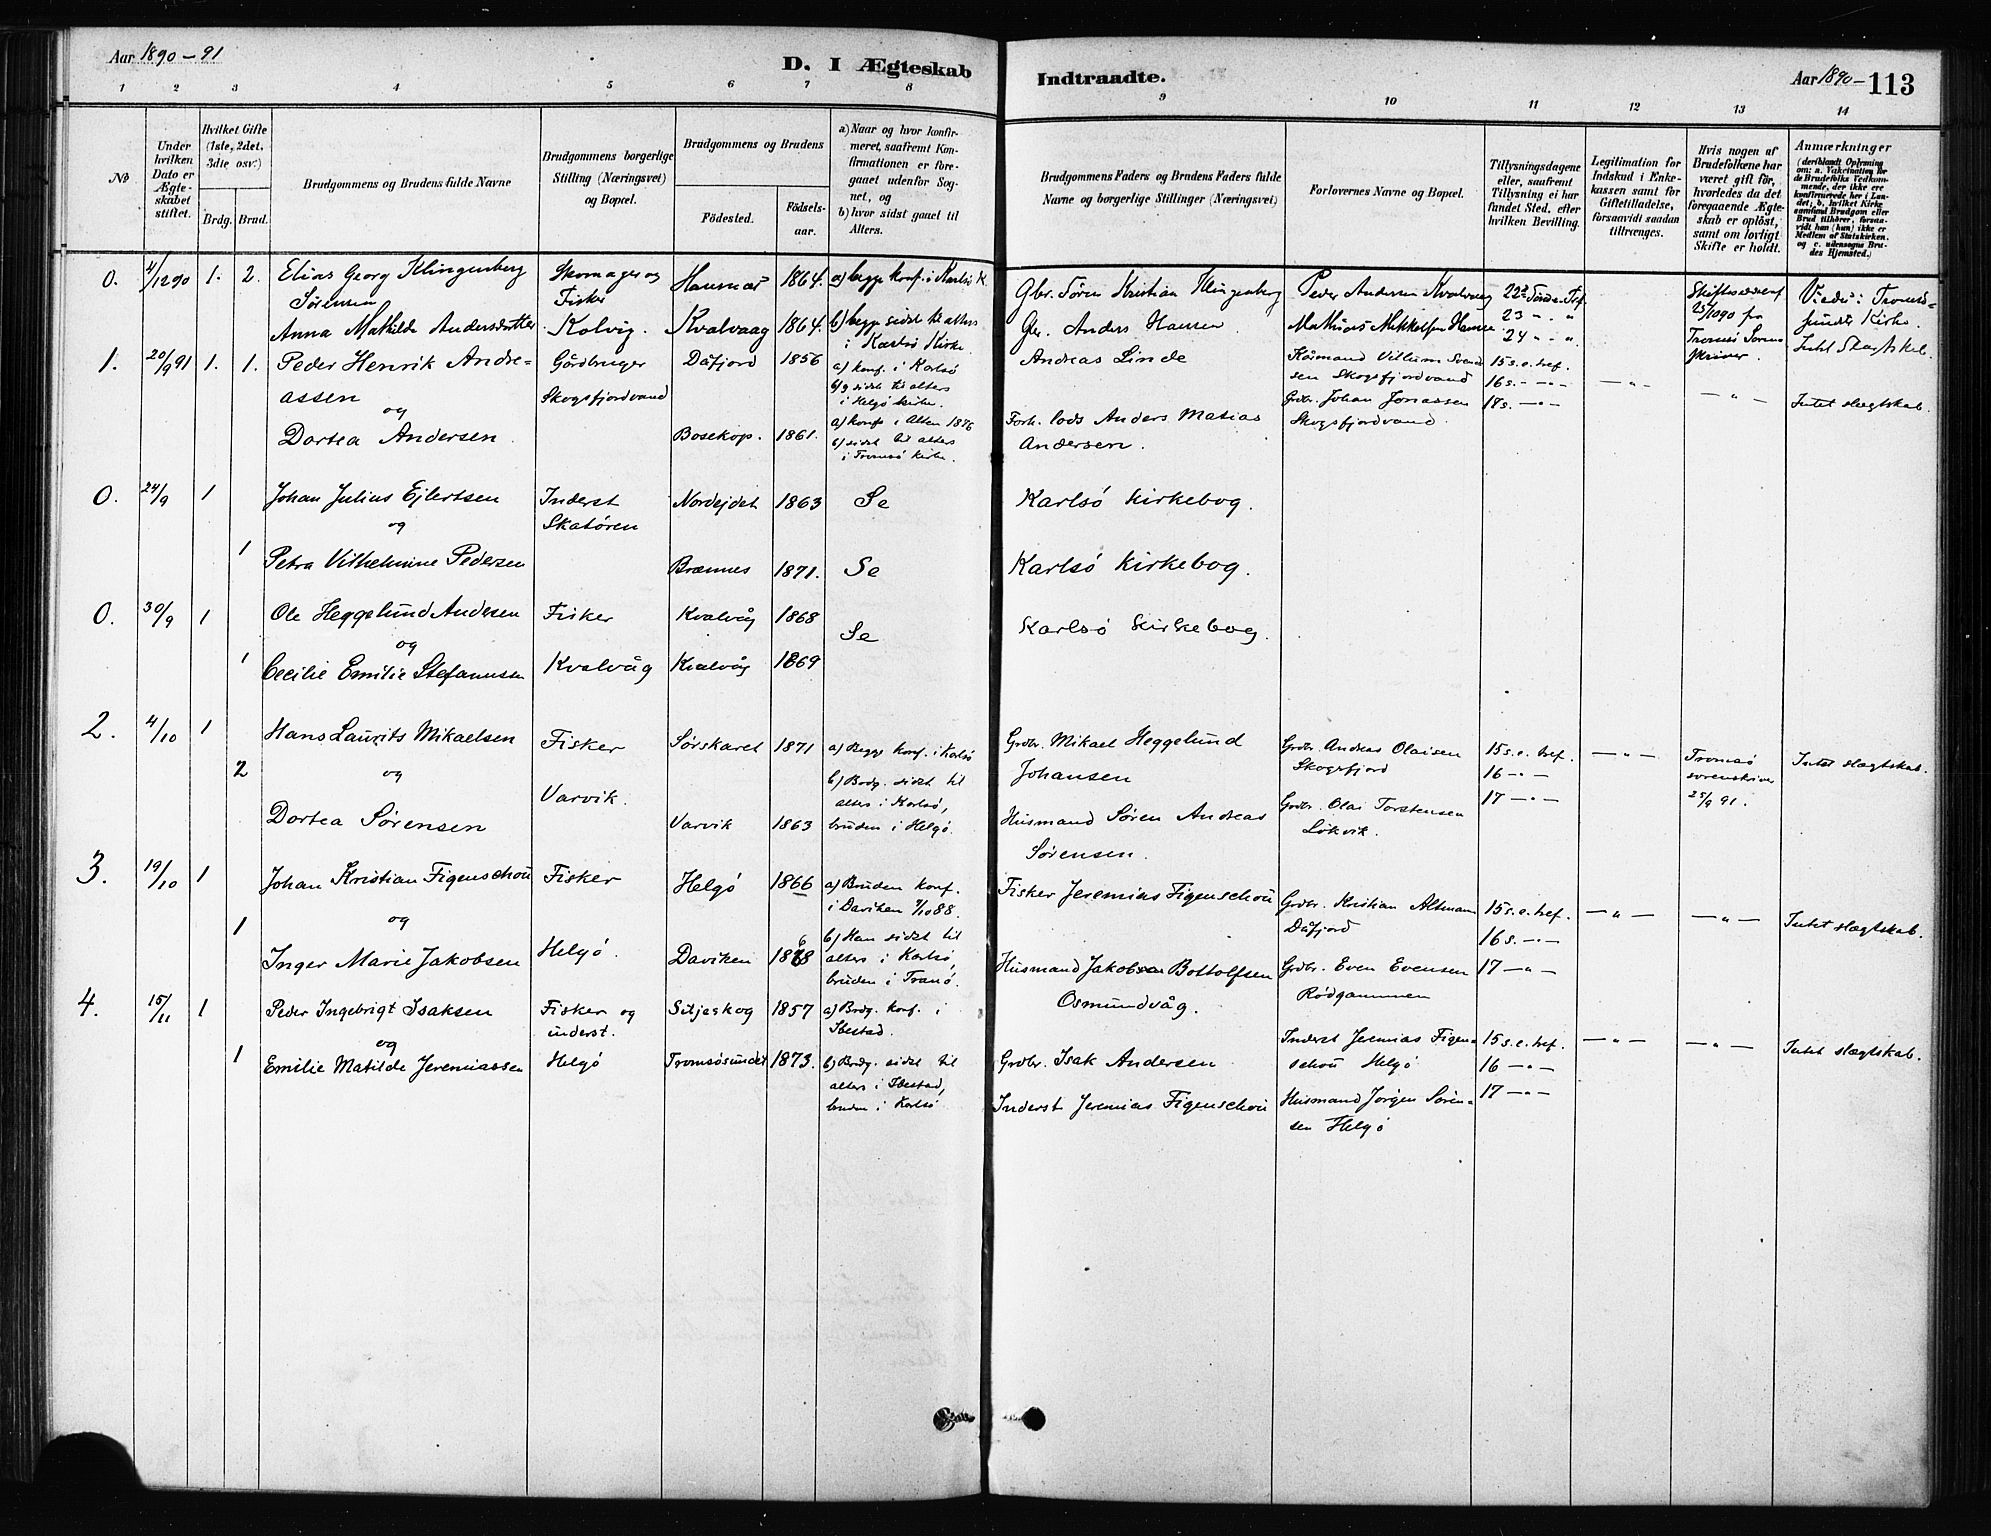 Aar 1890-91
D. I Ægteskab
Indtraadte.
Aar 1890- 113
1 2 3 4 5 6 7 8 9 10 11 12 13 14
No
Under hvilken Dato er Ægteskabet stiftet.
Hvilket Gifte (1ste, 2det, 3die osv.)
Brdg. Brud.
Brudgommens og Brudens fulde Navne
Brudgommens borgerlige Stilling (Næringsvei) og Bopæl.
Brudgommens og Brudens
Fødested.
Fødsels-aar.
a) Naar og hvor konfirmeret, saafremt Konfirmationen er foregaaet udenfor Sognet, og
b) hvor sidst gaaet til Alters.
Brudgommens Faders og Brudens Faders fulde Navne og borgerlige Stillinger (Næringsvei)
Forlovernes Navne og Bopæl.
Tillysningsdagene eller, saafremt Tillysning ei har fundet Sted, efter hvilken Bevilling.
Legitimation for Indskud i Enkekassen samt for Giftetilladelse, forsaavidt saadan tiltrænges.
Hvis nogen af Brudefolkene har været gift før, hvorledes da det foregaaende Ægteskab er opløst, samt om lovligt Skifte er holdt.
Anmærkninger
(deriblandt Oplysning om: a. Vakcination for de Brudefolks Vedkommende, der ikke ere konfirmerede her i Landet; b. hvilket Kirkesamfund Brudgom eller Brud tilhører, forsaavidt han (hun) ikke er Medlem af Statskirken, og c. udensogns Brudes Hjemsted.)
0. 4/12 90 1. 2. Elias Georg Klingenberg Sørensen
Skomager og Fisker
1864. a) begge konf. i Karlsö K.
Gbr. Søren Kristian Klingenberg
Peder Andersen Kvalvaag
Anna Mathilde Andersdatter
Kolvig. Kvalvaag 1864. b) begge sidst til alters i Karlsö Kirke.
Gbr. Anders Hansen
23 - " "
24 " - ".
25/10 90 fra
Viede i Tromsösundets Kirke.
1. 20/9 91 1. 1. Peder Henrik Andreassen
og
Dortea Andersen
Gårdbruger
Skogsfjordvand
Dåfjord 1856
a) konf. i Karlsö
b) sidst til alters i Helgö kirke.
Bosekop. 1861.
a) konf. i Alten 1876
b) sidst til alters i Tromsö kirke.
Andreas Linde
Forh. lods Anders Matias Andersen.
Skogsfjordvand
Grdbr. Johan Jonassen
Skogsfjordvand.
15 s. e. tref.
16 s. - " -
18 s. - " -
- " -
- " -
Intet slægtskab.
0. 24/9 1 Johan Julius Ejlertsen
og
1 Petra Vilhelmine Pedersen
Inderst
Skatören
Nordejdet 1863 Se Karlsö Kirkebog.
Brænnes 1871. Se Karlsö Kirkebog.
0. 30/9 1 Ole Heggelund Andersen
og
1 Cecilie Emilie Stefanussen
Fisker
Kvalvåg
Kvalvåg 1868
Kvalvåg 1869
Se Karlsö Kirkebog.
2. 4/10 1 Hans Laurits Mikaelsen
2 og
Dortea Sørensen
Fisker
Varvik.
Sørskaret 1871
Varvik 1863
a) Begge konf. i Karlsö
b) Brdg. sidst til alters i Karlsö, bruden i Helgö.
Grdbr. Mikael Heggelund Johansen
Husmand Søren Andreas Sørensen.
Grdbr. Andreas Olaisen
Skogsfjord
Grdbr. Olai Torstensen
Lökvik.
15 s. e. tref.
16 - " -
17 - " -
- " -
Tromsö sorenskriver 25/9 91.
Intet slægtskab.
3. 19/10 1 Johan Kristian Figenschou
1 og
Inger Marie Jakobsen
Fisker
Helgö.
Helgö 1866
Daviken
a) Bruden konf. i Daviken
b) Han sidst til alters i Karlsö, bruden i Tranö.
Fisker Jeremias Figenschou
Husmand Jakobsen Bottolfsen Osmundvåg.
Grdbr. Kristian Altmann
Dåfjord
Grdbr. Even Evensen
Rödgammen
15 s. e. tref.
16 s. - " -
17 - " -
- " -
- " -
Intet slægtskab.
4. 15/11 1 Peder Ingebrigt Isaksen
og
1 Emilie Matilde Jeremiassen
Fisker og inderst.
Helgö
Siljeskog 1857
Tromsösundet 1873.
a) Brdg. konf. i Ibestad.
b) Brdg. sidst til alters i Ibestad, bruden i Karlsö
Grdbr. Isak Andersen
Inderst Jeremias Figenschou
Inderst Jeremias Figenschou Helgö
Husmand Jörgen Sörensen Helgö
15 s. e. tref.
16 - " -
17 - " -
- " -
- " -
Intet slægtskab.